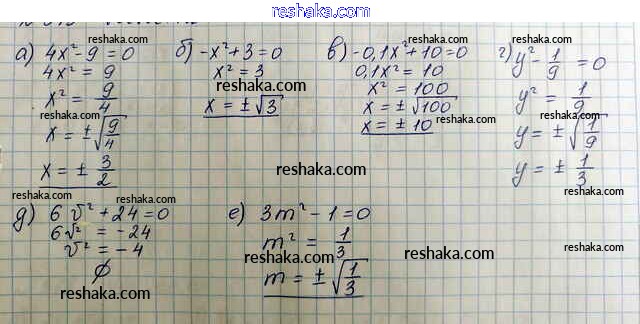 reshaka.com
а) 4x² - 9 = 0
4x² = 9
x² = 9/4
x = ± √(9/4)
x = ± 3/2
б) -x² + 3 = 0
x² = 3
x = ± √3
в) -0,1x² + 10 = 0
0,1x² = 10
x² = 100
x = ± √100
x = ± 10
г) y² - 1/9 = 0
y² = 1/9
y = ± √(1/9)
y = ± 1/3
д) 6v² + 24 = 0
6v² = -24
v² = -4
∅
е) 3m² - 1 = 0
m² = 1/3
m = ± √(1/3)
reshaka.com
reshaka.com
reshaka.com
reshaka.com
reshaka.com
reshaka.com
reshaka.com
reshaka.com
reshaka.com
reshaka.com
reshaka.com
reshaka.com